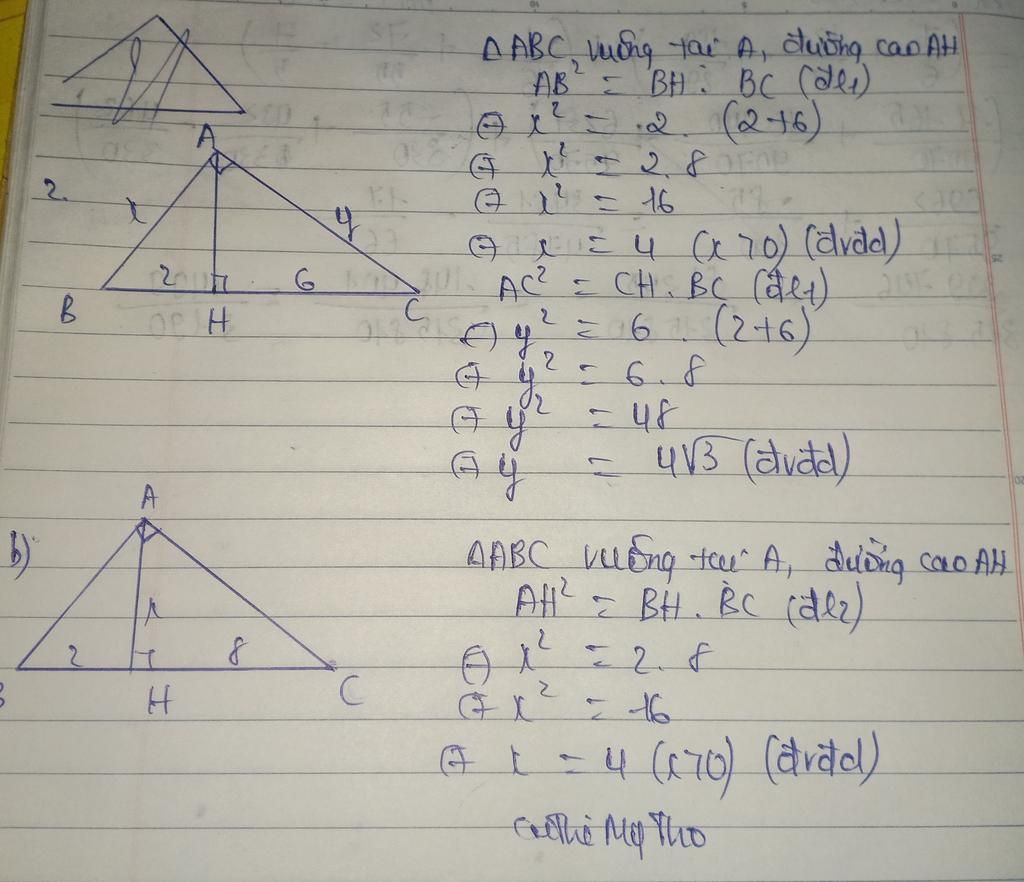 ΔABC vuông tại A, đường cao AH
AB² = BH. BC (đl1)
⇔ x² = 2. (2+6)
⇔ x² = 2. 8
⇔ x² = 16
⇔ x = 4 (x>0) (đvđd)
AC² = CH. BC (đl1)
⇔ y² = 6 . (2+6)
⇔ y² = 6. 8
⇔ y² = 48
⇔ y = 4√3 (đvđd)
2.
A
x
y
2
6
B
H
C
b)
A
x
2
8
B
H
C
ΔABC vuông tại A, đường cao AH
AH² = BH. BC (đl2)
⇔ x² = 2. 8
⇔ x² = 16
⇔ x = 4 (x>0) (đvđd)